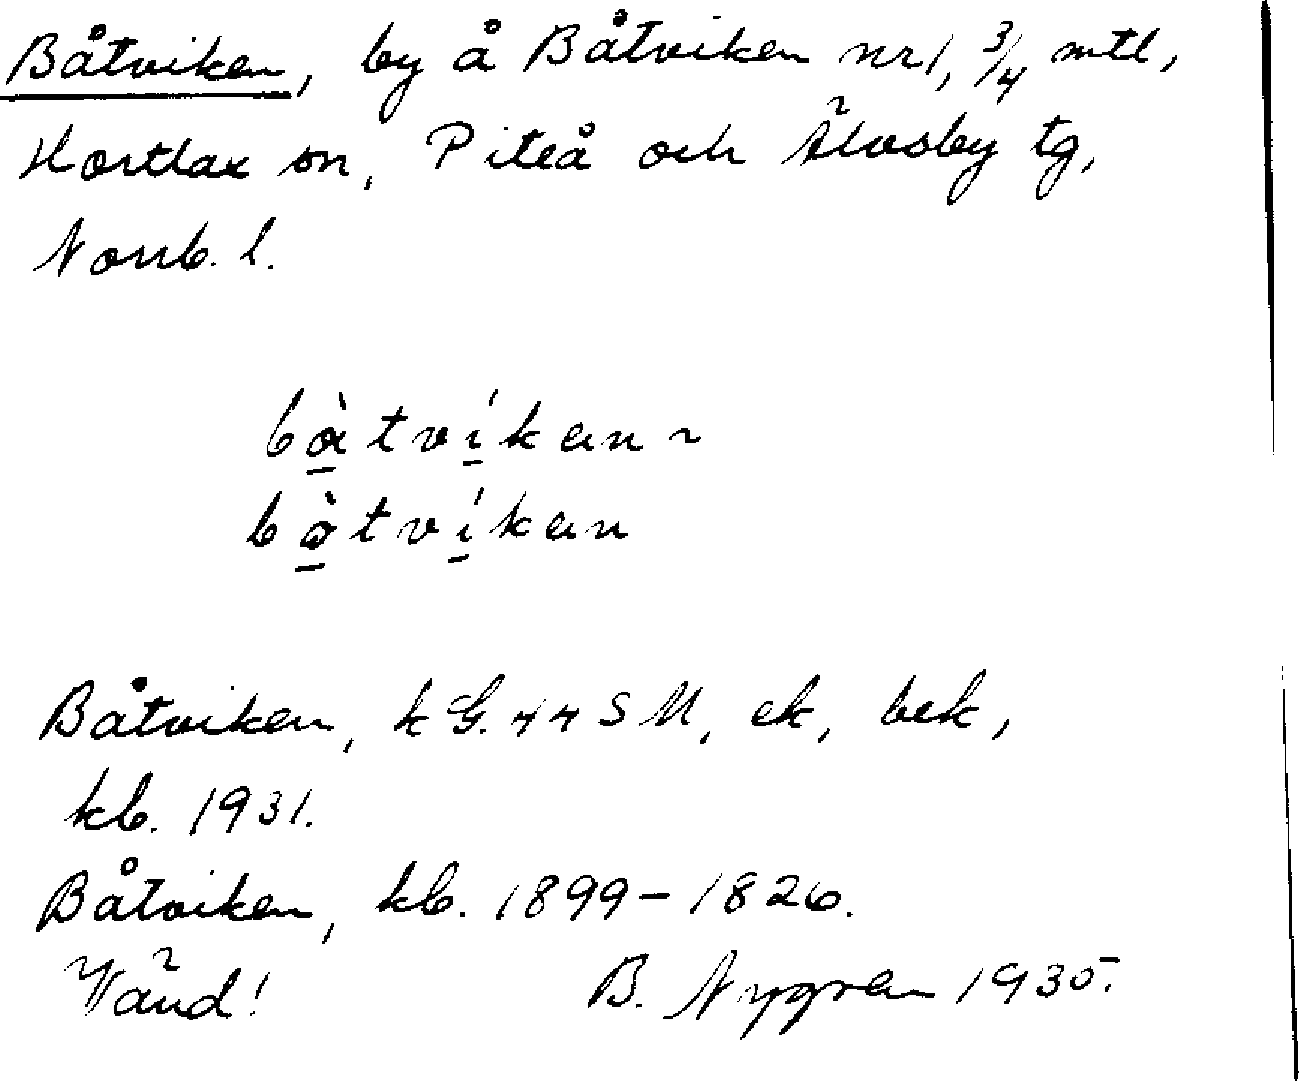 Båtviken, by å Båtviken nr 1, 3/4 mtl,
Hortlax sn, Piteå och Älvsby tg,
Norrb. l.
bà̱tví̱kən ~
bò̱tví̱kən
Båtviken, k G. 44 S M, ek, bek,
kb. 1931.
Båtviken, kb. 1899–1826.
Vänd! B. Nygren 1935.